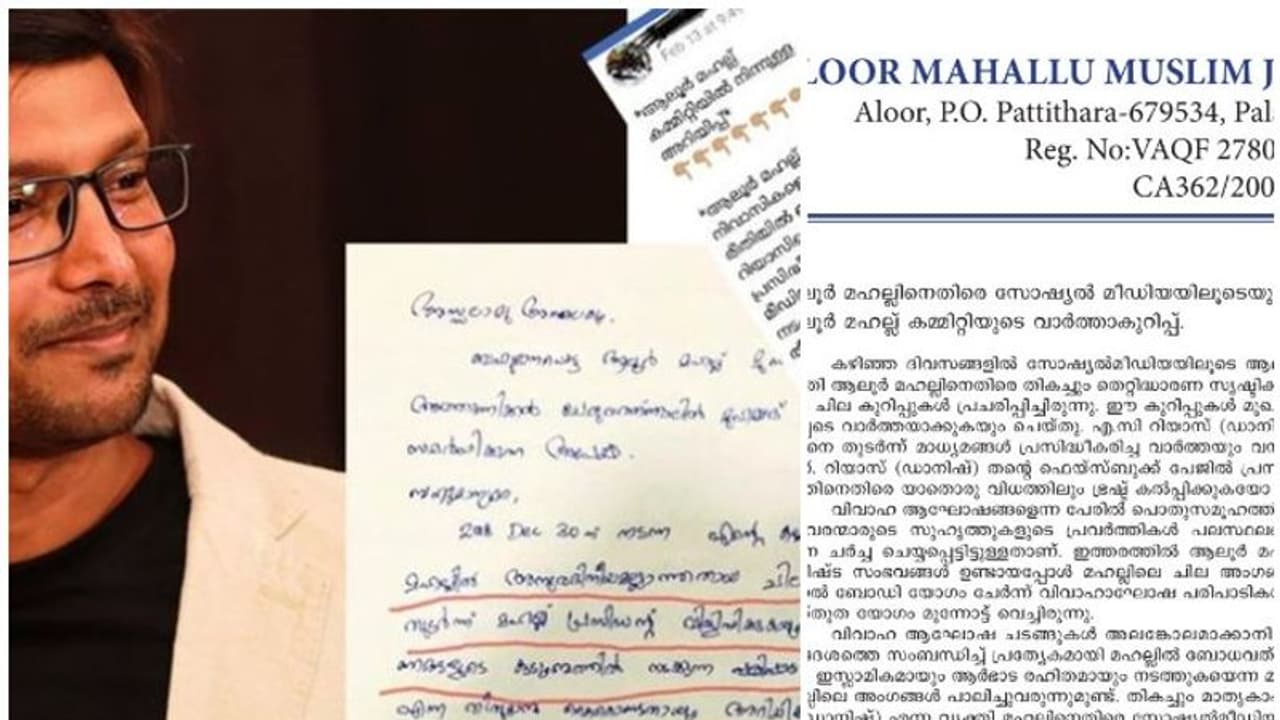 Feb 13 at 9:4
*ആലൂർ മഹല്ല്
കമ്മിറ്റിയിൽ നിന്നുള്ള
അറിയിപ്പ്*
*ആലൂർ മഹല്
നിവാസികളെ
രീതിയിൽ
റിയാസിന
പ്രസിദ്ധീ
മീഡി
നട
അസ്സലാമു അലൈക്കും,
ബഹുമാനപ്പെട്ട ആലൂർ മഹല്ല്
സമർപ്പിക്കുന്ന അപേക്ഷ.
2018 Dec 30 ന് നടന്ന എന്റെ
മഹല്ലിൽ അനുവദിനീയമല്ലാത്തതായ ചില
തുടർന്ന് മഹല്ല് പ്രസിഡന്റ് വിളിപ്പിക്കുകയും
ഞങ്ങളുടെ കുടുംബത്തിൽ നടക്കുന്ന പരിപാടി
എന്ന തീരുമാനം കൈക്കൊണ്ടതായും അറിയി
LOOR MAHALLU MUSLIM J
Aloor, P.O. Pattithara-679534, Pal
Reg. No:VAQF 2780
CA362/200
ലൂർ മഹല്ലിനെതിരെ സോഷ്യൽ മീഡിയയിലൂടെയു
ലൂർ മഹല്ല് കമ്മിറ്റിയുടെ വാർത്താകുറിപ്പ്.
കഴിഞ്ഞ ദിവസങ്ങളിൽ സോഷ്യൽമീഡിയയിലൂടെ ആ
തി ആലൂർ മഹല്ലിനെതിരെ തികച്ചും തെറ്റിദ്ധാരണ സൃഷ്ടിക്ക
ചില കുറിപ്പുകൾ പ്രചരിപ്പിച്ചിരുന്നു. ഈ കുറിപ്പുകൾ മുഖ
ുടെ വാർത്തയാക്കുകയും ചെയ്തു. എ.സി റിയാസ് (ഡാനി
നെ തുടർന്ന് മാധ്യമങ്ങൾ പ്രസിദ്ധീകരിച്ച വാർത്തയും വ
. റിയാസ് (ഡാനിഷ്) തന്റെ ഫെയ്സ്ബുക്ക് പേജിൽ പ്രസ
തിനെതിരെ യാതൊരു വിധത്തിലും ഭ്രഷ്ട് കൽപ്പിക്കുകയോ
വിവാഹ ആഘോഷങ്ങളെന്ന പേരിൽ പൊതുസമൂഹത്തി
വരന്മാരുടെ സുഹൃത്തുകളുടെ പ്രവർത്തികൾ പലസ്ഥല
ന ചർച്ച ചെയ്യപ്പെട്ടിട്ടുള്ളതാണ്. ഇത്തരത്തിൽ ആലൂർ മ
ിഷ്ട സംഭവങ്ങൾ ഉണ്ടായപ്പോൾ മഹല്ലിലെ ചില അംഗ
ൽ ബോഡി യോഗം ചേർന്ന് വിവാഹാഘോഷ പരിപാടിക
്തുത യോഗം മുന്നോട്ട് വെച്ചിരുന്നു.
വിവാഹ ആഘോഷ ചടങ്ങുകൾ അലങ്കോലമാക്കാനി
ദേശത്തെ സംബന്ധിച്ച് പ്രത്യേകമായി മഹല്ലിൽ ബോധവത്
ഇസ്ലാമികമായും ആർഭാട രഹിതമായും നടത്തുകയെന്ന മ
ിലെ അംഗങ്ങൾ പാലിച്ചുവരുന്നുമുണ്ട്. തികച്ചും മാതൃകാ
ഡാനിഷ്) എന്ന വ്യക്തി മഹല്ലിനെതിരെ സോഷ്യൽമീഡിയ